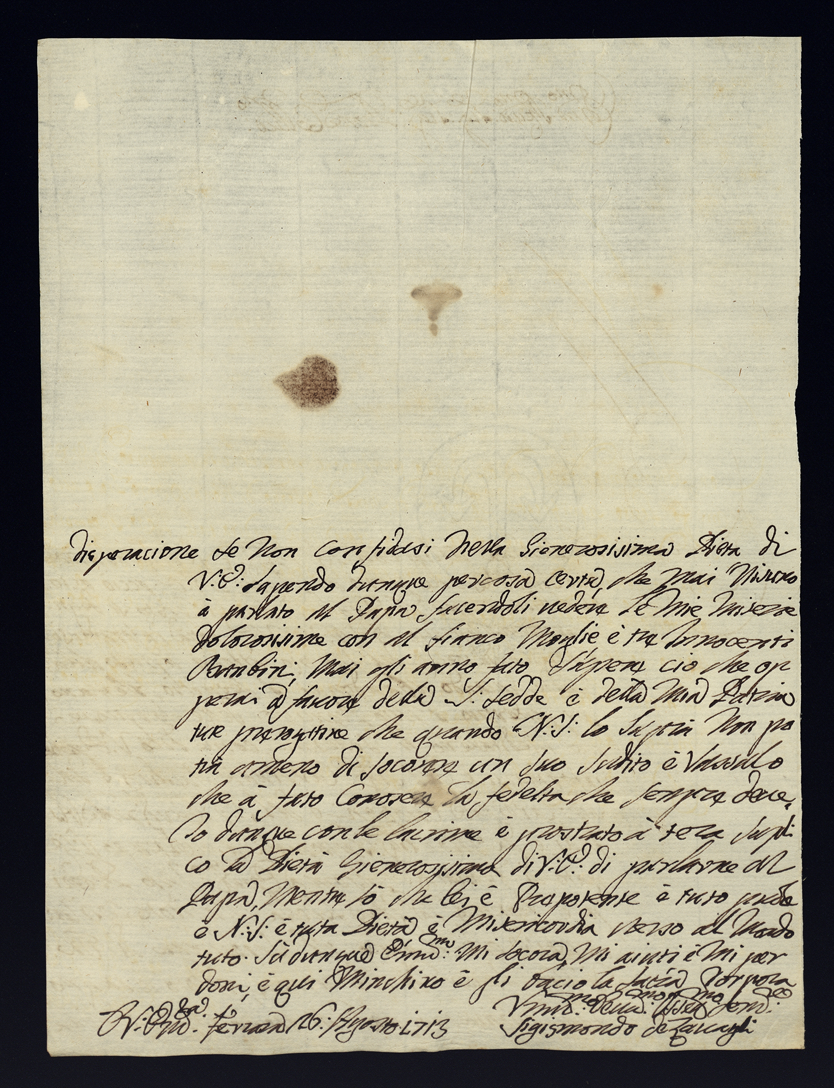 disperacione se Non Confidasi Nella Gienerosisima Pieta di
V.E. Sapendo dunque per cosa certa, che Mai Nisuno
à parlato al Papa facendoli vedere le Mie Miserie
dolorosisime con al fianco Moglie è tre Innocenti
Mai gli anno fato Sapere cio che op
perai à favore della S. Sedde è della Mia Patria
tue che quando N.S. lo Sapia Non po
tra ameno di socorere un suo Sudito è Vasalo
che à fato Conoscere la fedelta che sempre deve.
Io dunque con le lacrime è prostrato à tera Supli
co la Pietà Gienerosisima di V.E. di parlarne al
Papa, Mentre sò che lei è è tuto puole
è N.S. è tuta Pietà è Misericordia verso al Mondo
tuto. Si dunque Em.mo Mi socora, Mi aiuti è Mi per
doni, è qui M'inchino è gli bacio la Sacra Porpora
Di V. Em.za Ferara 26: Agosto 1713
Sigismondo